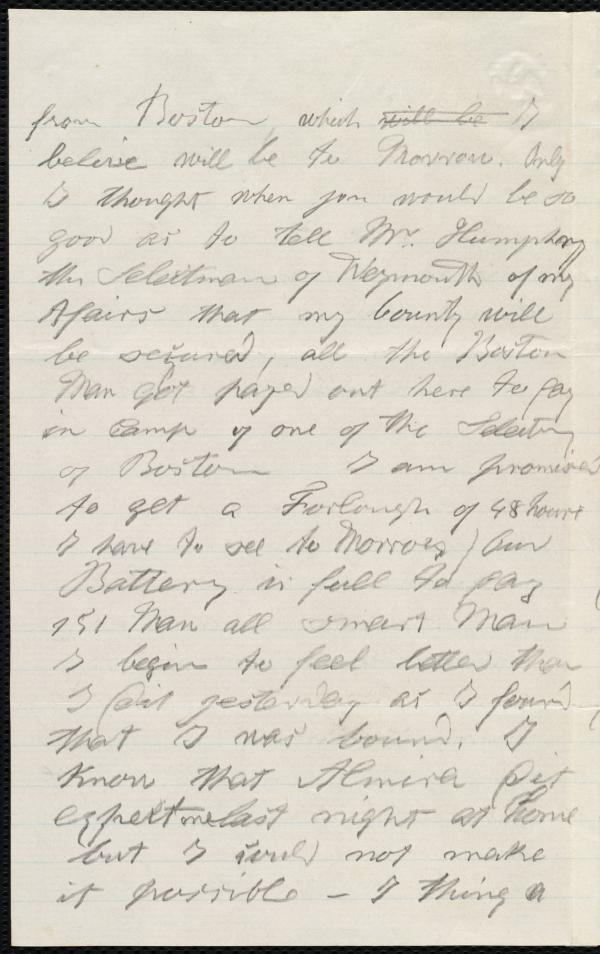 from Boston, which will be I
beleive will be to Morrow. Only
I thought when you would be so
good as to tell Mr. Humphrey
the Selectman of Weymouth of my
Afairs that my bounty will
be secured, all the Boston
Man got payed out here to pay
in Camp of one of the Selectm
of Boston I am promised
to get a Forlough of 48 hours
I have to see to Morrow) Our
Battery is full to pay
151 Man all smart Man
I begin to feel better than
I dit yesterday as I found
that I was bound. I
Know that Almira dit
expect me last night at home
but I could not make
it possible – I thing a